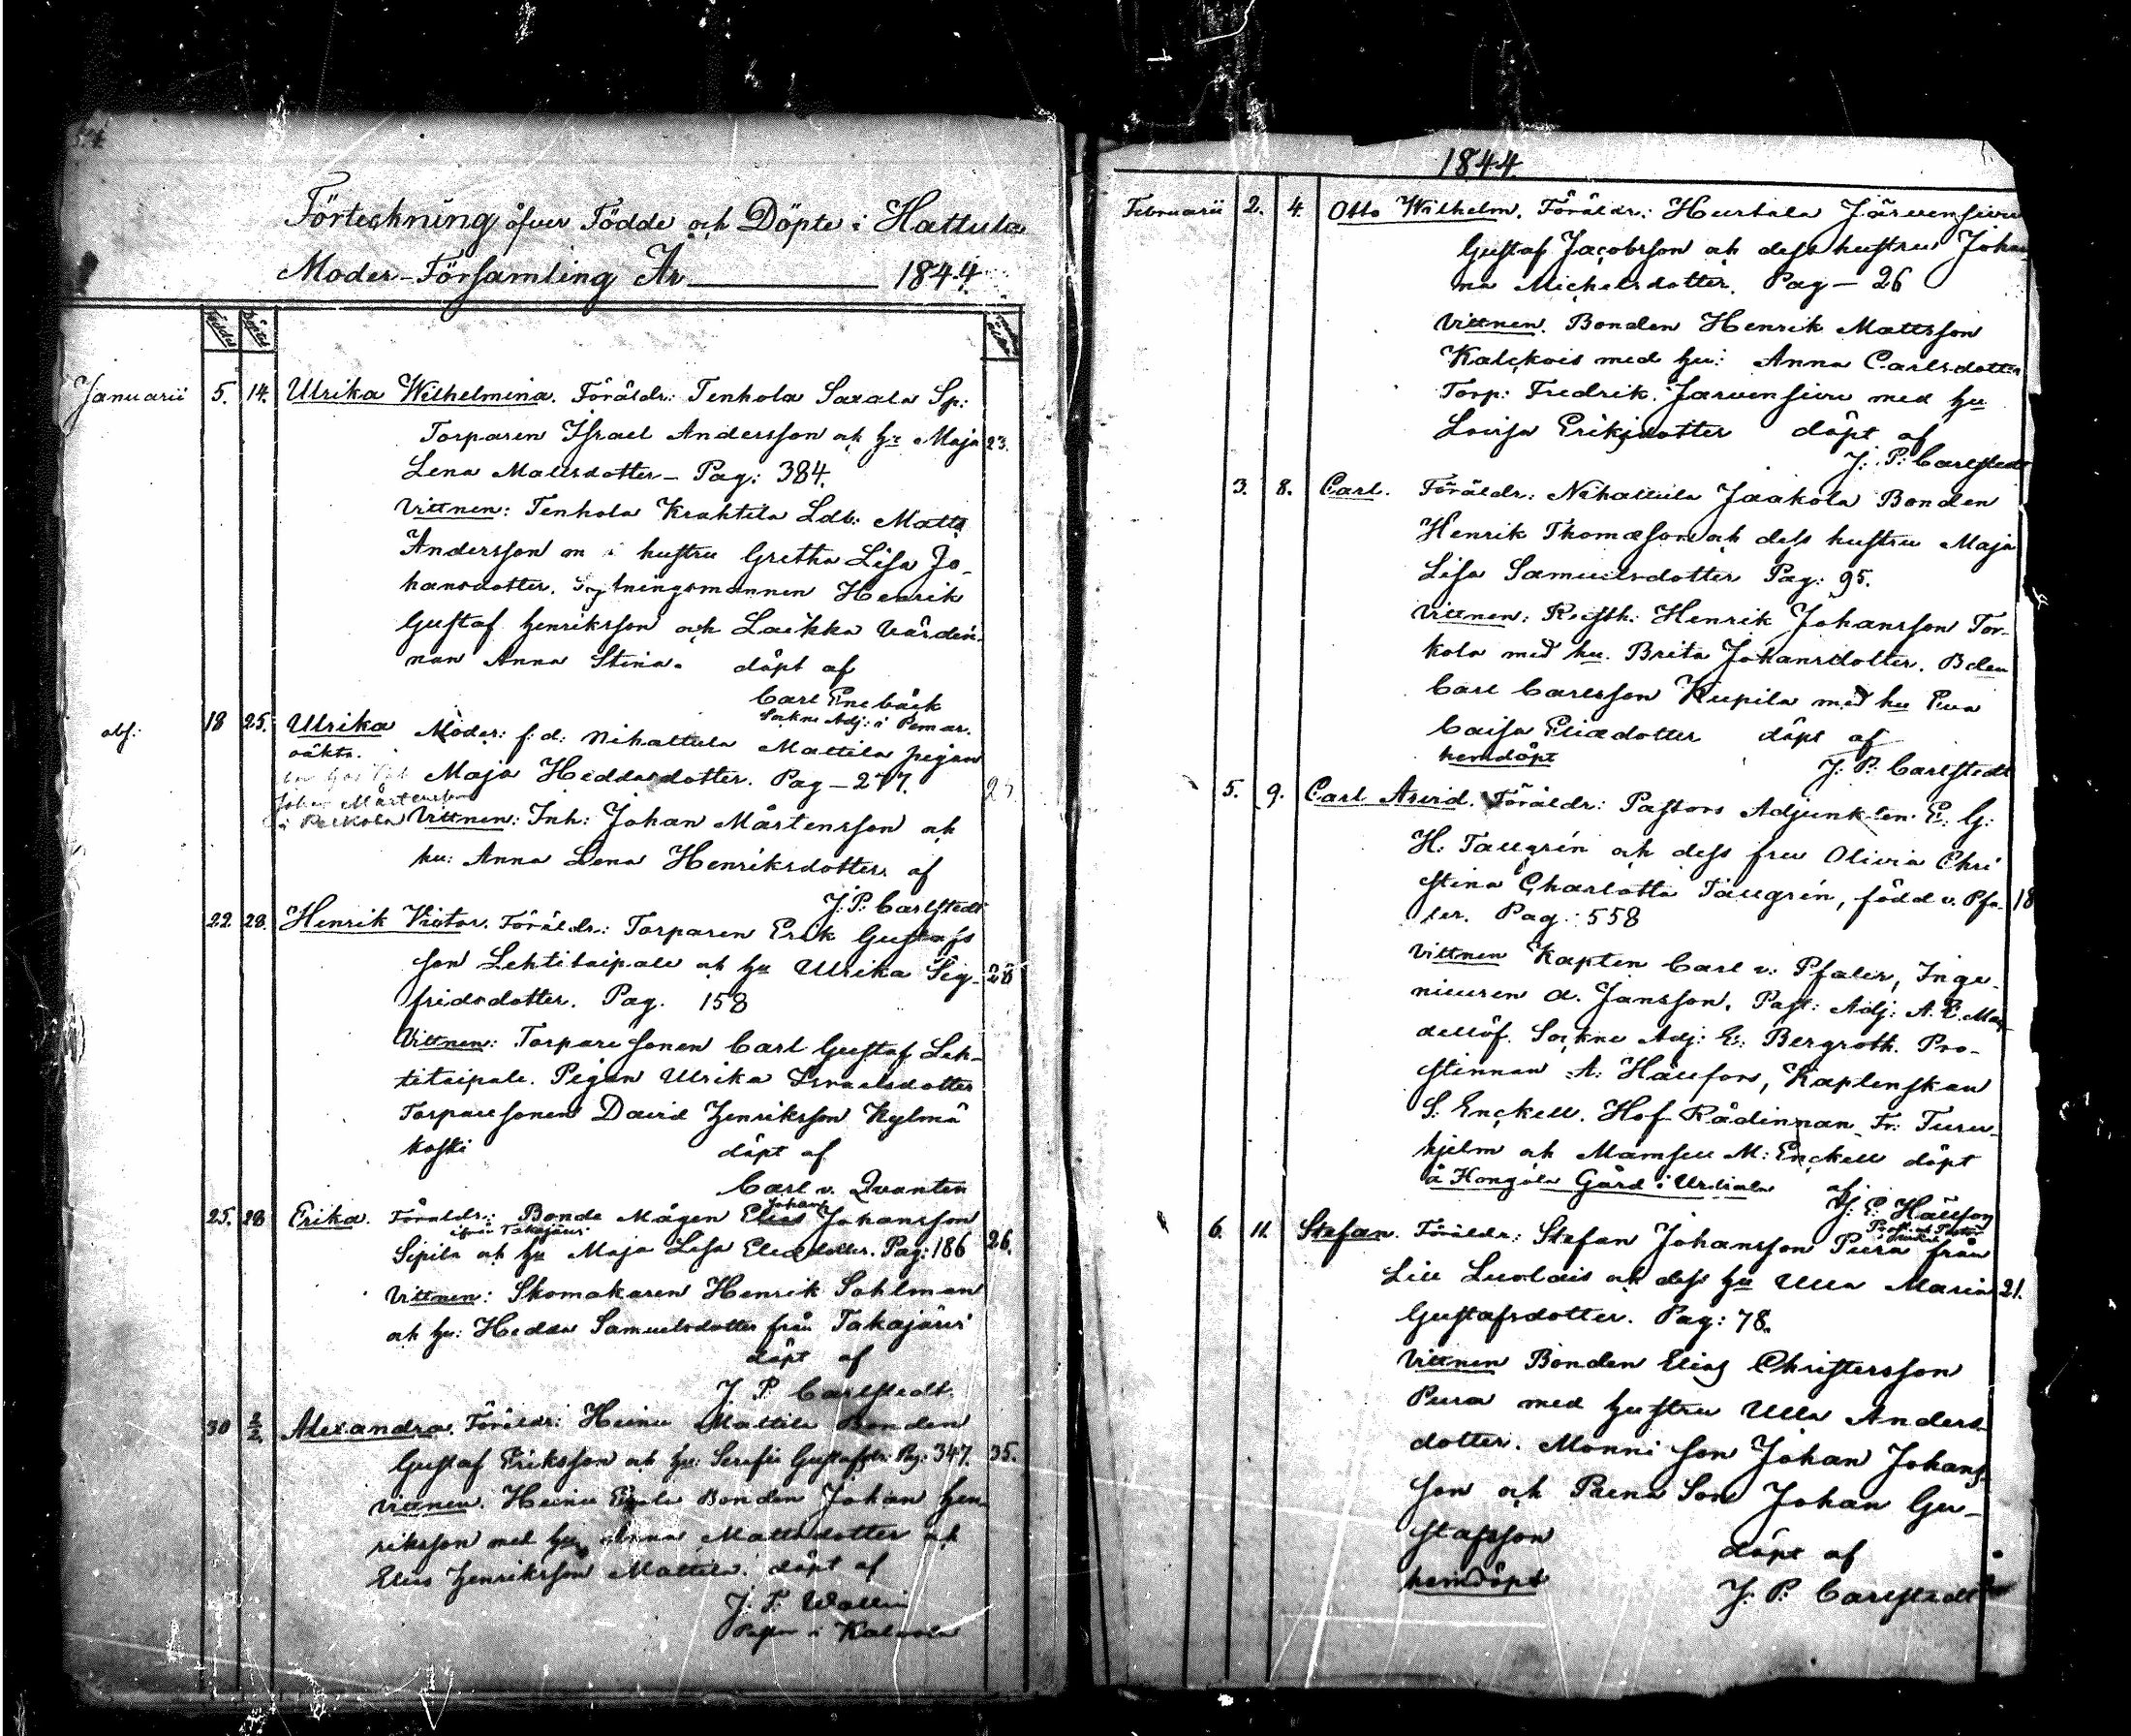 Förteckning öfver Födde och Döpte i Hattula
Moder-Församling År 1844.
Födde Döpte
Januarii 5. 14. Ulrika Wilhelmina. Föräldr: Tenhola Saxala Sp:
Torparen Israel Andersson och hu Maja 23.
Lena Mattsdotter – Pag: 384.
Vittnen: Tenhola Krahtila Ldb: Matts
Andersson hustru Gretha Lisa Jo-
hansdotter. Henrik
Gustaf Henriksson och Laikka Värdin-
nan Anna Stina. döpt af
Carl Enebäck
Sockne Adj: i Pemar.
18 25. Ulrika Moder: f: d: Nihattula Mattila pigan
oäkta.
Maja Heddasdotter. Pag – 277.
Johan Mårtensson
i Pelkola Vittnen: Inh: Johan Mårtensson och
hu: Anna Lena Henriksdotter af
J: P: Carlstedt
22. 28. Henrik Victor. Föräldr: Torparen Erik Gustafs
son Lehtitaipale och hu Ulrika Sig- 28
fridsdotter. Pag. 158
Vittnen: Torpare sonen Carl Gustaf Leh-
titaipale. Pigan Ulrika Israelsdotter
Torparesonen David Henriksson Kylmä
koski döpt af
Carl v. Qvanten
25. 28 Erika. Föräldr: Bonde Mågen Elias Johansson
Johan
ifrån Takajärvi
Sipila och hu Maja Lisa Eliædotter. Pag: 186 26.
Vittnen: Skomakaren Henrik Sahlman
och hu: Hedda Samuelsdotter från Takajärvi
döpt af
J. P. Carlstedt.
30 2/2. Alexandra. Föräldr: Heinu Mattila Bonden
Gustaf Eriksson och hu: Serafia Gustafsdr: Pag: 347. 35.
Vittnen. Heinu Bonden Johan Hen
riksson med hu Anna Mattsdotter och
Elias Henriksson Mattila. döpt af
J. F. Wallin
i Kalvola
1844
Februarii 2. 4. Otto Wilhelm. Föräldr: Hurtala Järvensivu
Gustaf Jacobsson och dess hustru Johan
na Michelsdotter. Pag – 26
Vittnen. Bonden Henrik Mattsson
Kalckois med hu: Anna Carlsdotter
Torp: Fredrik Jarvensivu med hu
Lovisa Eriksdotter döpt af
J: P: Carlstedt
3. 8. Carl. Föräldr: Nihattula Jaakola Bonden
Henrik Thomæson och dess hustru Maja
Lisa Samuelsdotter Pag: 95.
Vittnen: Rusth: Henrik Johansson Tor-
kola med hu. Brita Johansdotter. Bden
Carl Carlsson Kupila med hu Eva
Caisa Eliædotter döpt af
hemdöpt J: P: Carlstedt
5. 9. Carl Arvid. Föräldr: Pastors Adjunkten E: G:
H. Taugrén och dess fru Olivia Chri
stina Charlotta Taugrén, född v. Pfa- 18
ler. Pag: 558
Vittnen Kapten Carl v: Pfaler, Inge-
nieuren A. Jansson. Past: Adj: A. E. Man
dellöf. Sockne Adj: E: Bergroth. Pro-
stinnan A: Häuson, Kaptenskan
S: Enckell. Hof Rådinnan Fr: Turu-
hjelm och Mamsell M: Enckell döpt
å Hongola Gård i Urdiala af
J: E: Häuson
6. 11. Stefan. Föräldr: Stefan Johansson Pura från
Lill Luolais och dess hu Ulla Maria 21.
Gustafsdotter. Pag: 78.
Vittnen Bonden Elias Christersson
Pura med hustru Ulla Anders-
dotter. Monni son Johan Johans-
son och Parna Son Johan Gu-
stafsson döpt af
hemdöpt J. P. Carlstedt